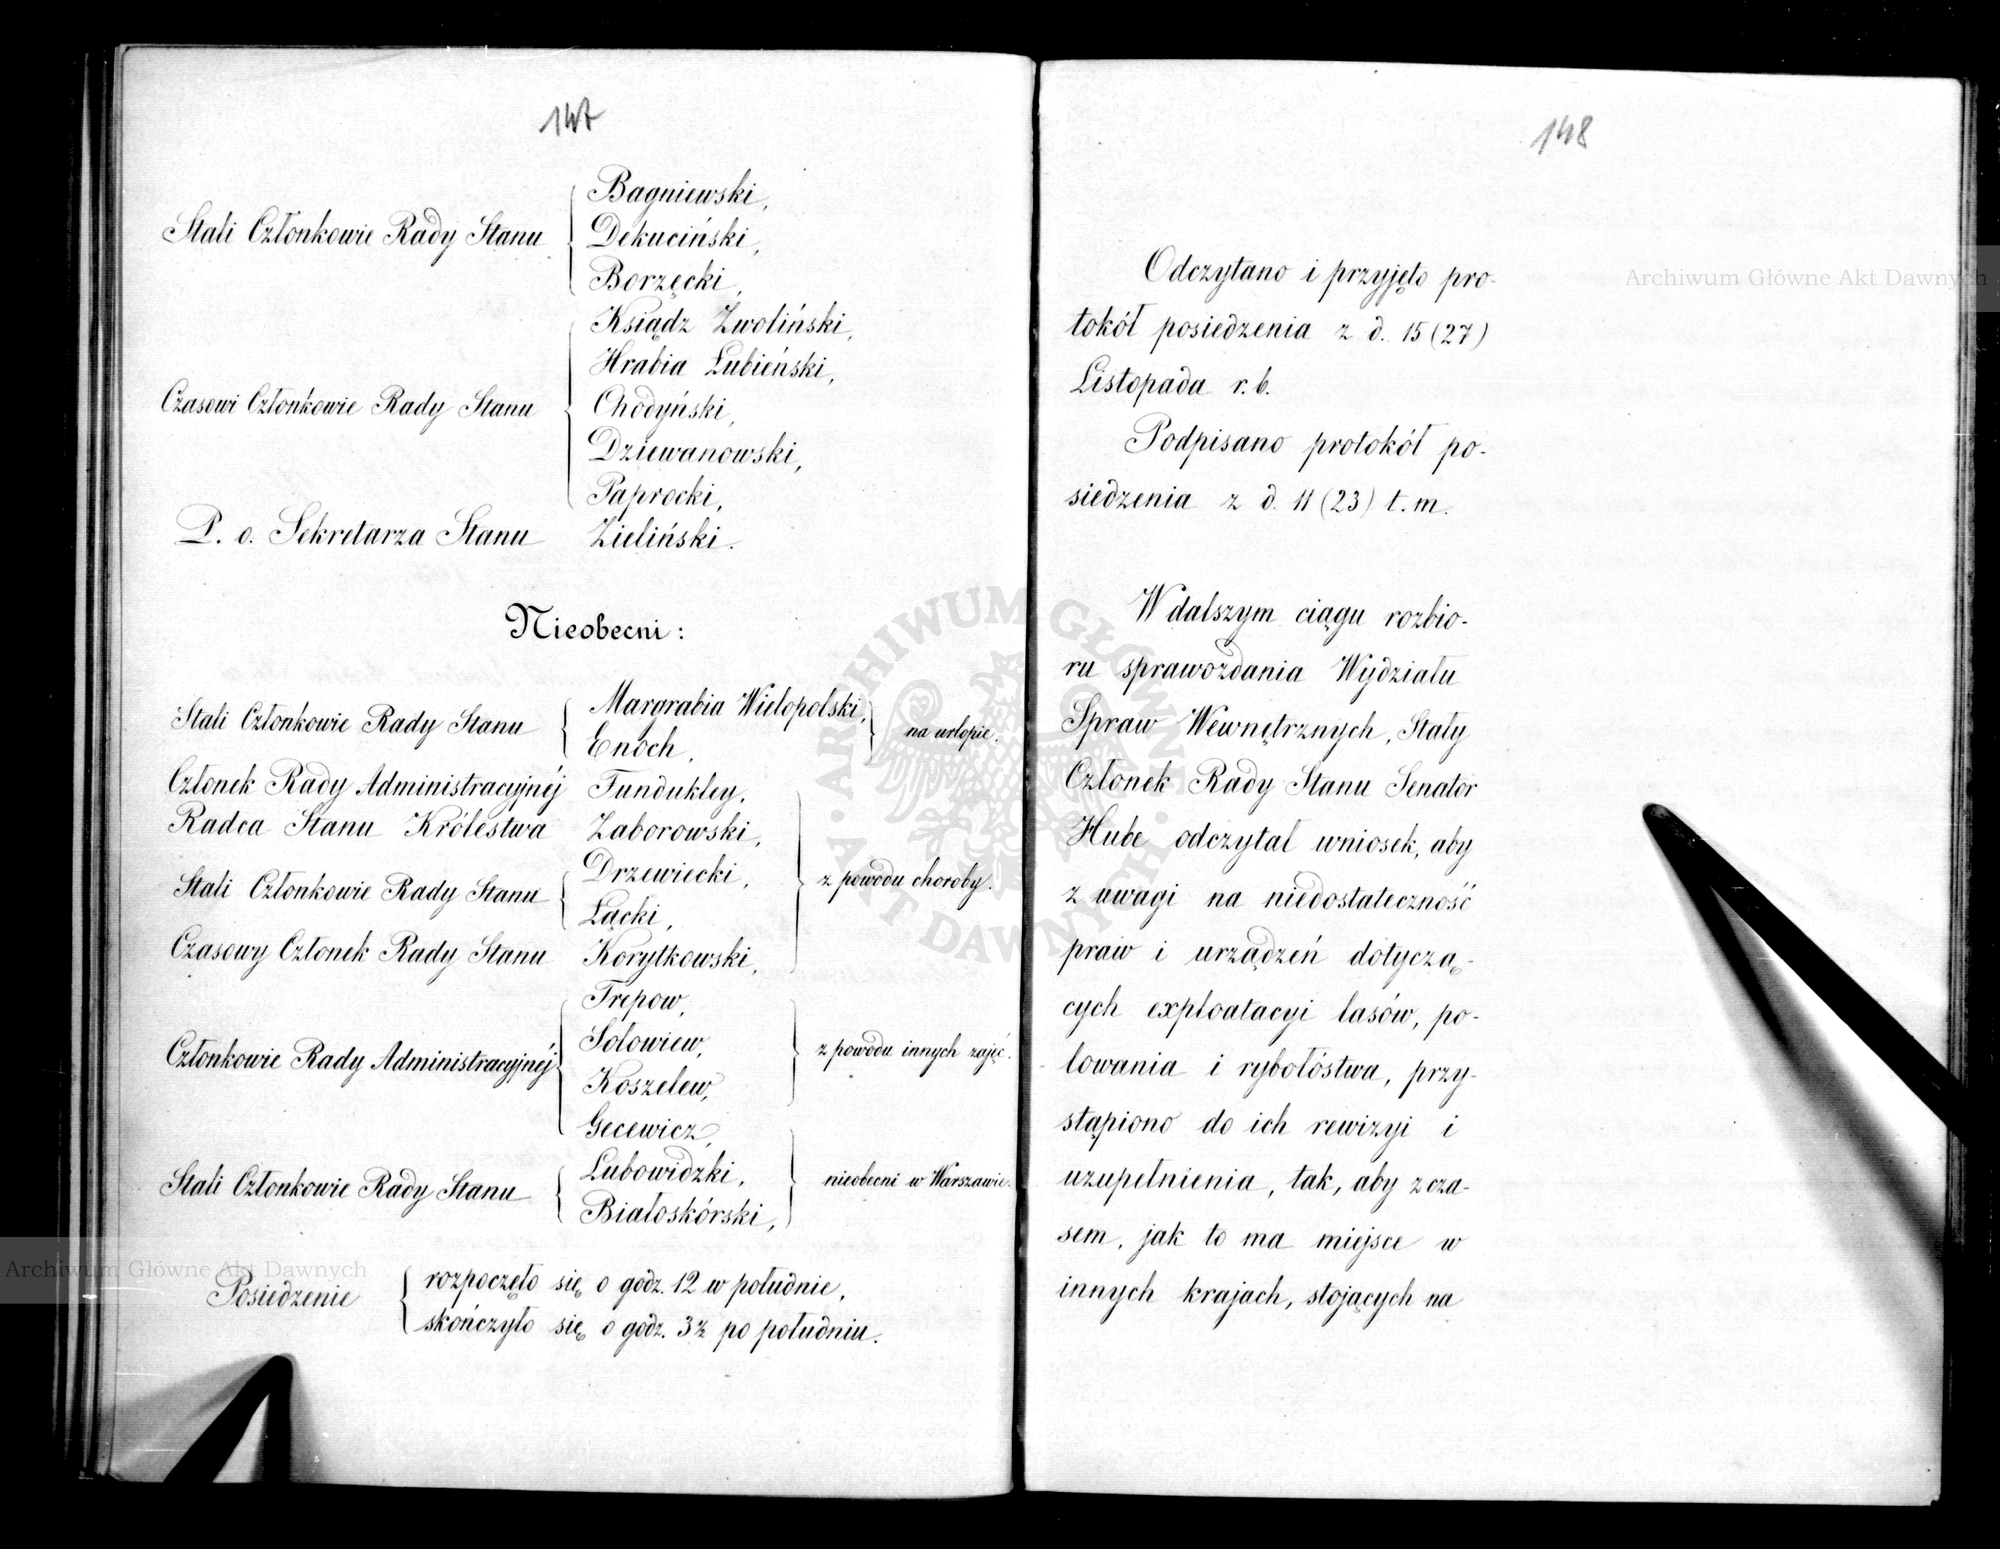 147
Stali Członkowie Rady Stanu
Bagniewski,
Dekuciński,
Borzęcki,
Czasowi Członkowie Rady Stanu
Ksiądz Zwoliński,
Hrabia Łubieński,
Chodyński,
Dziewanowski,
Paprocki,
P. o. Sekretarza Stanu Zieliński.
Nieobecni:
Stali Członkowie Rady Stanu
Margrabia Wielopolski,
Enoch,
na urlopie.
Członek Rady Administracyjnéj Fundukley,
Radca Stanu Królestwa Zaborowski,
Stali Członkowie Rady Stanu
Drzewiecki,
Łącki,
Czasowy Członek Rady Stanu Korytkowski,
z powodu choroby.
Członkowie Rady Administracyjnéj
Trepow,
Sołowiew,
Koszelew,
z powodu innych zajęć.
Gecewicz,
Stali Członkowie Rady Stanu
Lubowidzki,
Białoskórski,
nieobecni w Warszawie.
Posiedzenie
rozpoczęło się o godz. 12 w południe,
skończyło się o godz. 3½ po południu.
148
Odczytano i przyjęto pro-
tokół posiedzenia z d. 15 (27)
Listopada r. b.
Podpisano protokół po-
siedzenia z d. 11 (23) t. m.
W dalszym ciągu rozbio-
ru sprawozdania Wydziału
Spraw Wewnętrznych, Stały
Członek Rady Stanu Senator
Hube odczytał wniosek, aby
z uwagi na niedostateczność
praw i urządzeń dotyczą-
cych exploatacyi lasów, po-
lowania i rybołóstwa, przy-
stąpiono do ich rewizyi i
uzupełnienia, tak, aby z cza-
sem, jak to ma miejsce w
innych krajach, stojących na
Archiwum Główne Akt Dawnych
Archiwum Główne Akt Dawnych
ARCHIWUM GŁÓWNE AKT DAWNYCH